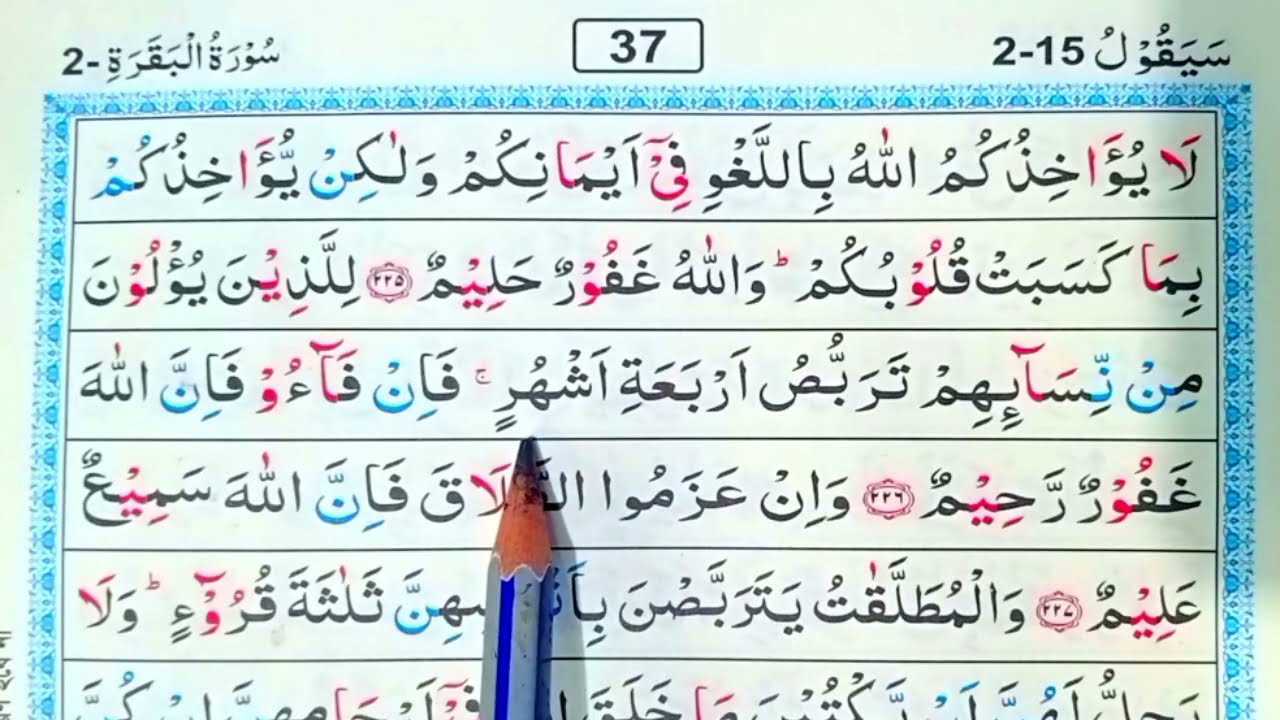 سَيَقُوْلُ 2-15 37 سُوْرَةُ الْبَقَرَةِ -2
لَا يُؤَاخِذُكُمُ اللّٰهُ بِاللَّغْوِ فِيْٓ اَيْمَانِكُمْ وَلٰكِنْ يُّؤَاخِذُكُمْ
بِمَا كَسَبَتْ قُلُوْبُكُمْ ؕ وَاللّٰهُ غَفُوْرٌ حَلِيْمٌ ﴿۲۲۵﴾ لِلَّذِيْنَ يُؤْلُوْنَ
مِنْ نِّسَآىِٕهِمْ تَرَبُّصُ اَرْبَعَةِ اَشْهُرٍ ۚ فَاِنْ فَآءُوْ فَاِنَّ اللّٰهَ
غَفُوْرٌ رَّحِيْمٌ ﴿۲۲۶﴾ وَاِنْ عَزَمُوا الطَّلَاقَ فَاِنَّ اللّٰهَ سَمِيْعٌ
عَلِيْمٌ ﴿۲۲۷﴾ وَالْمُطَلَّقٰتُ يَتَرَبَّصْنَ بِاَنْفُسِهِنَّ ثَلٰثَةَ قُرُوْٓءٍ ؕ وَلَا